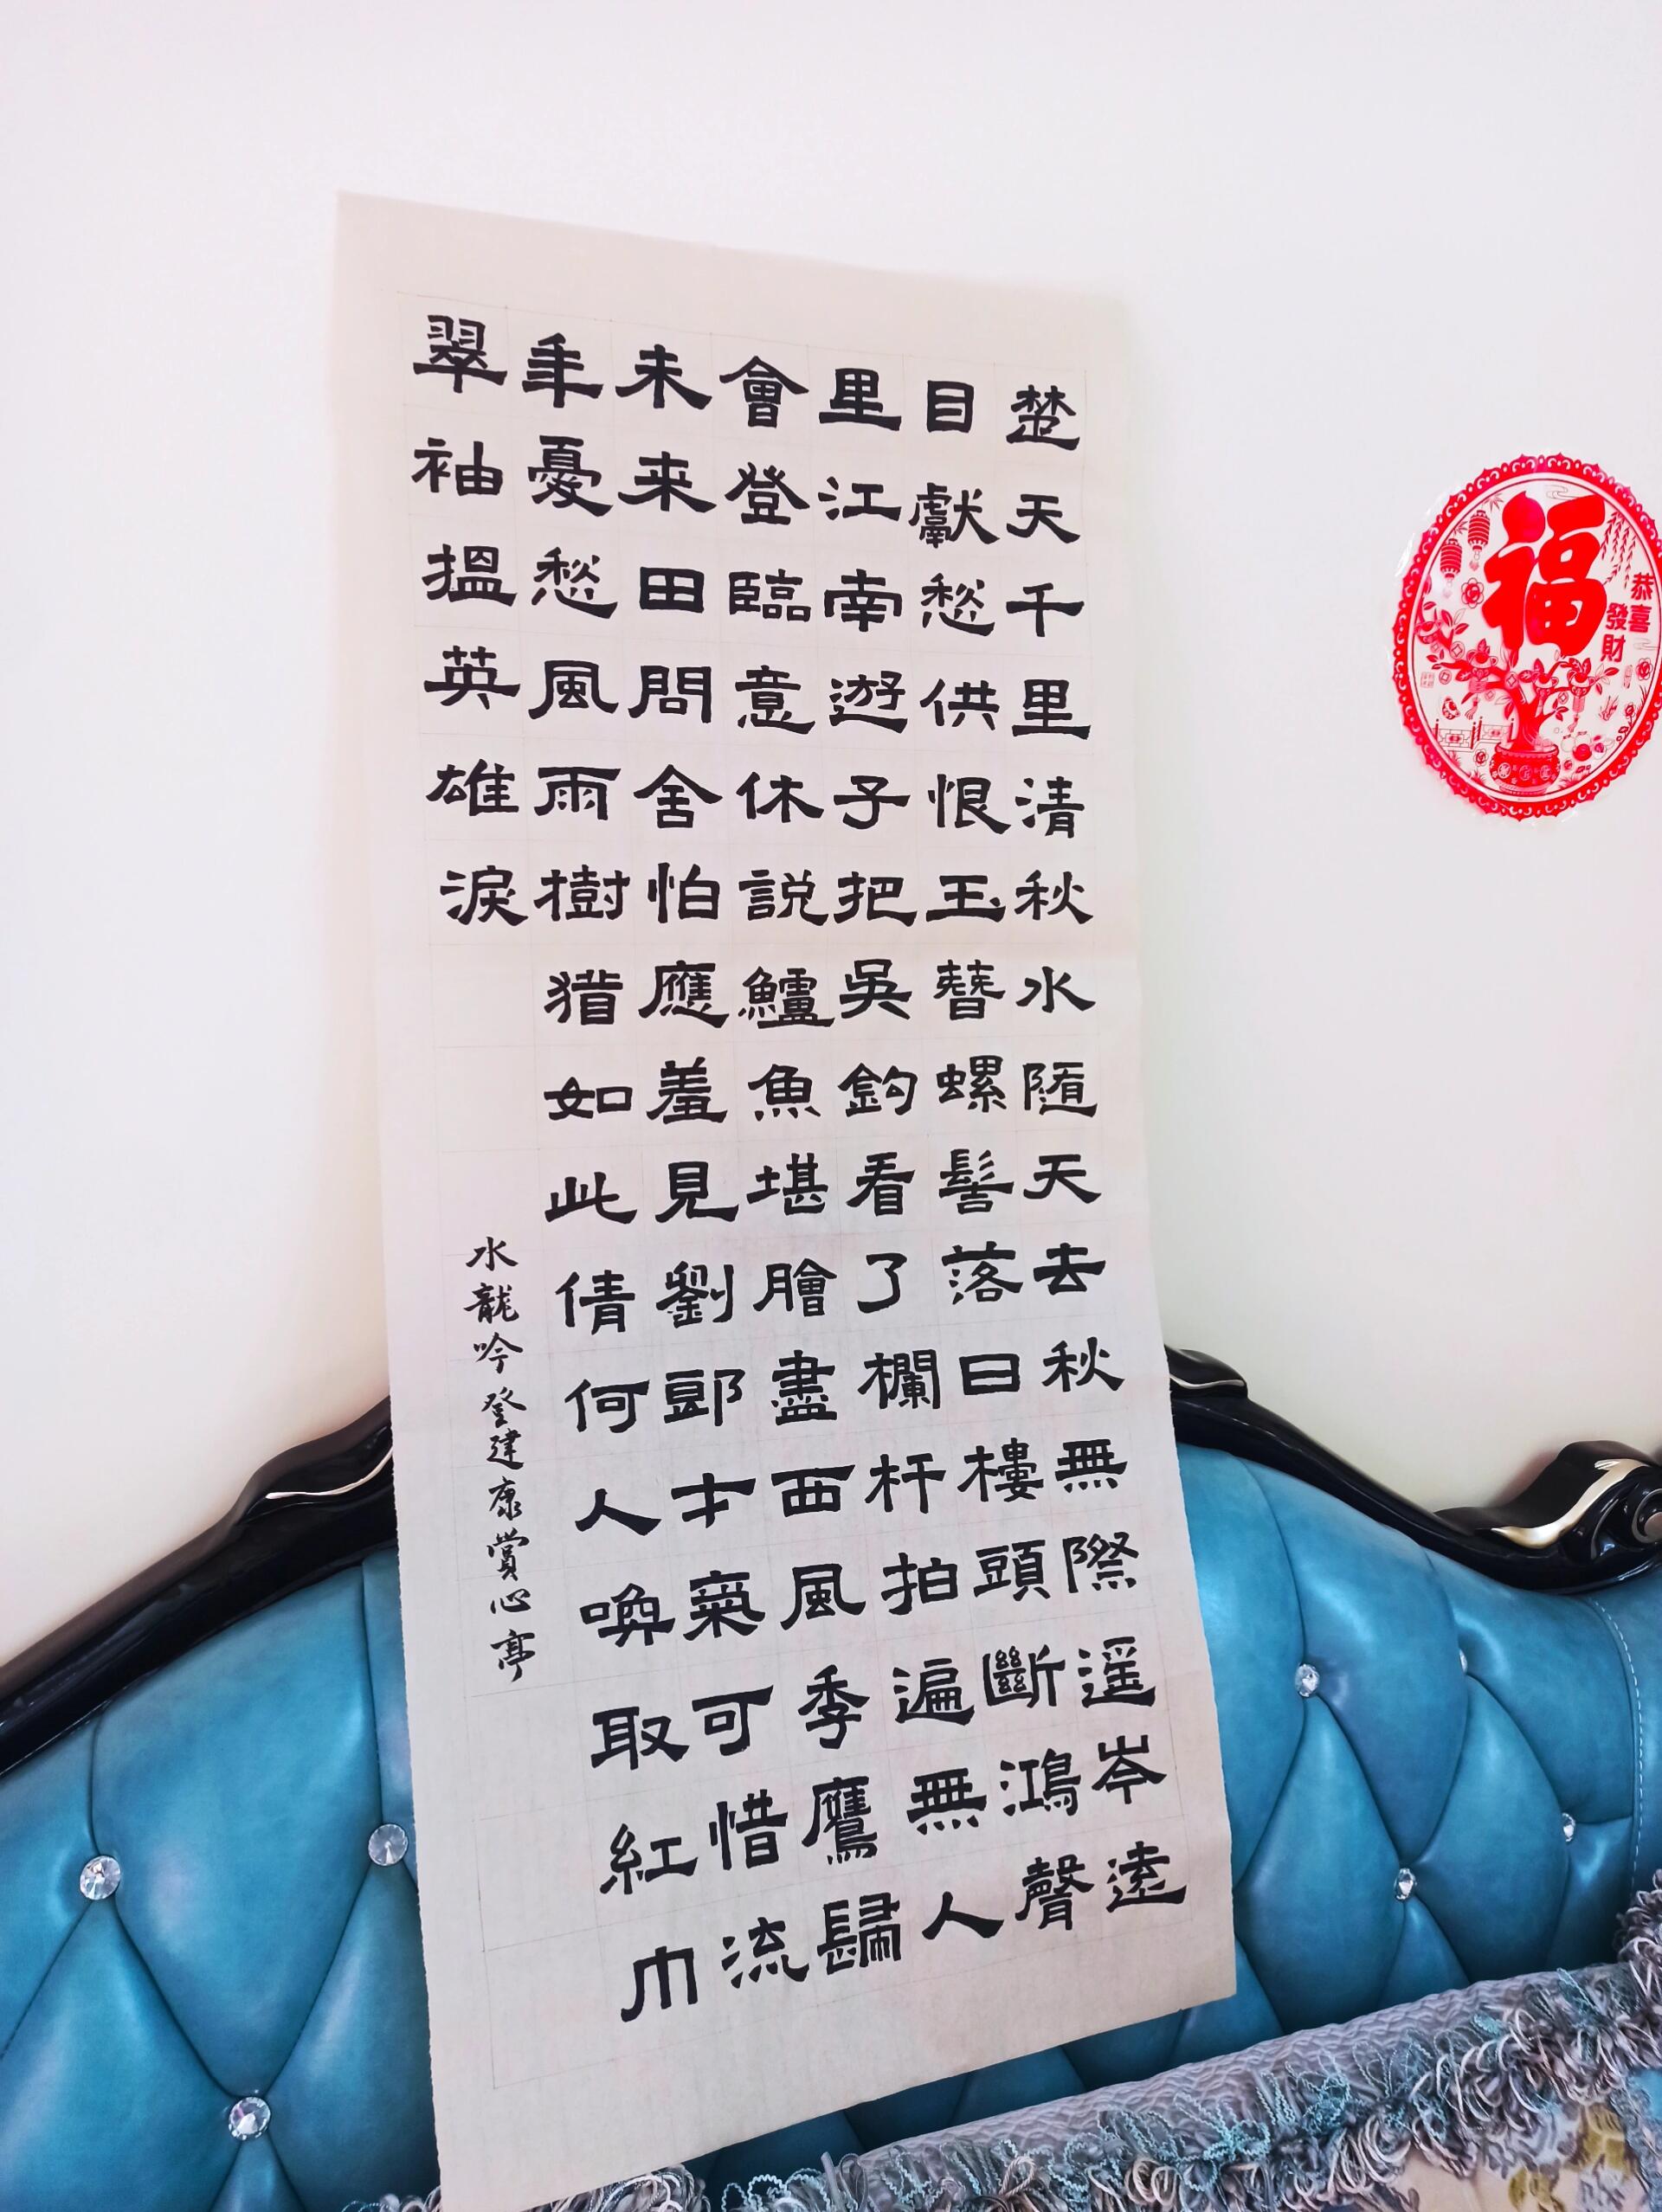 楚天千里清秋水隨天去秋無際遥岑遠
目獻愁供恨玉簪螺髻落日樓頭斷鴻聲
里江南遊子把吳鉤看了欄杆拍遍無人
會登臨意休説鱸魚堪膾盡西風季鷹歸
未来田問舍怕應羞見劉郎才氣可惜流
年憂愁風雨樹猶如此倩何人喚取紅巾
翠袖搵英雄淚
水龍吟登建康賞心亭
福
恭喜
發財